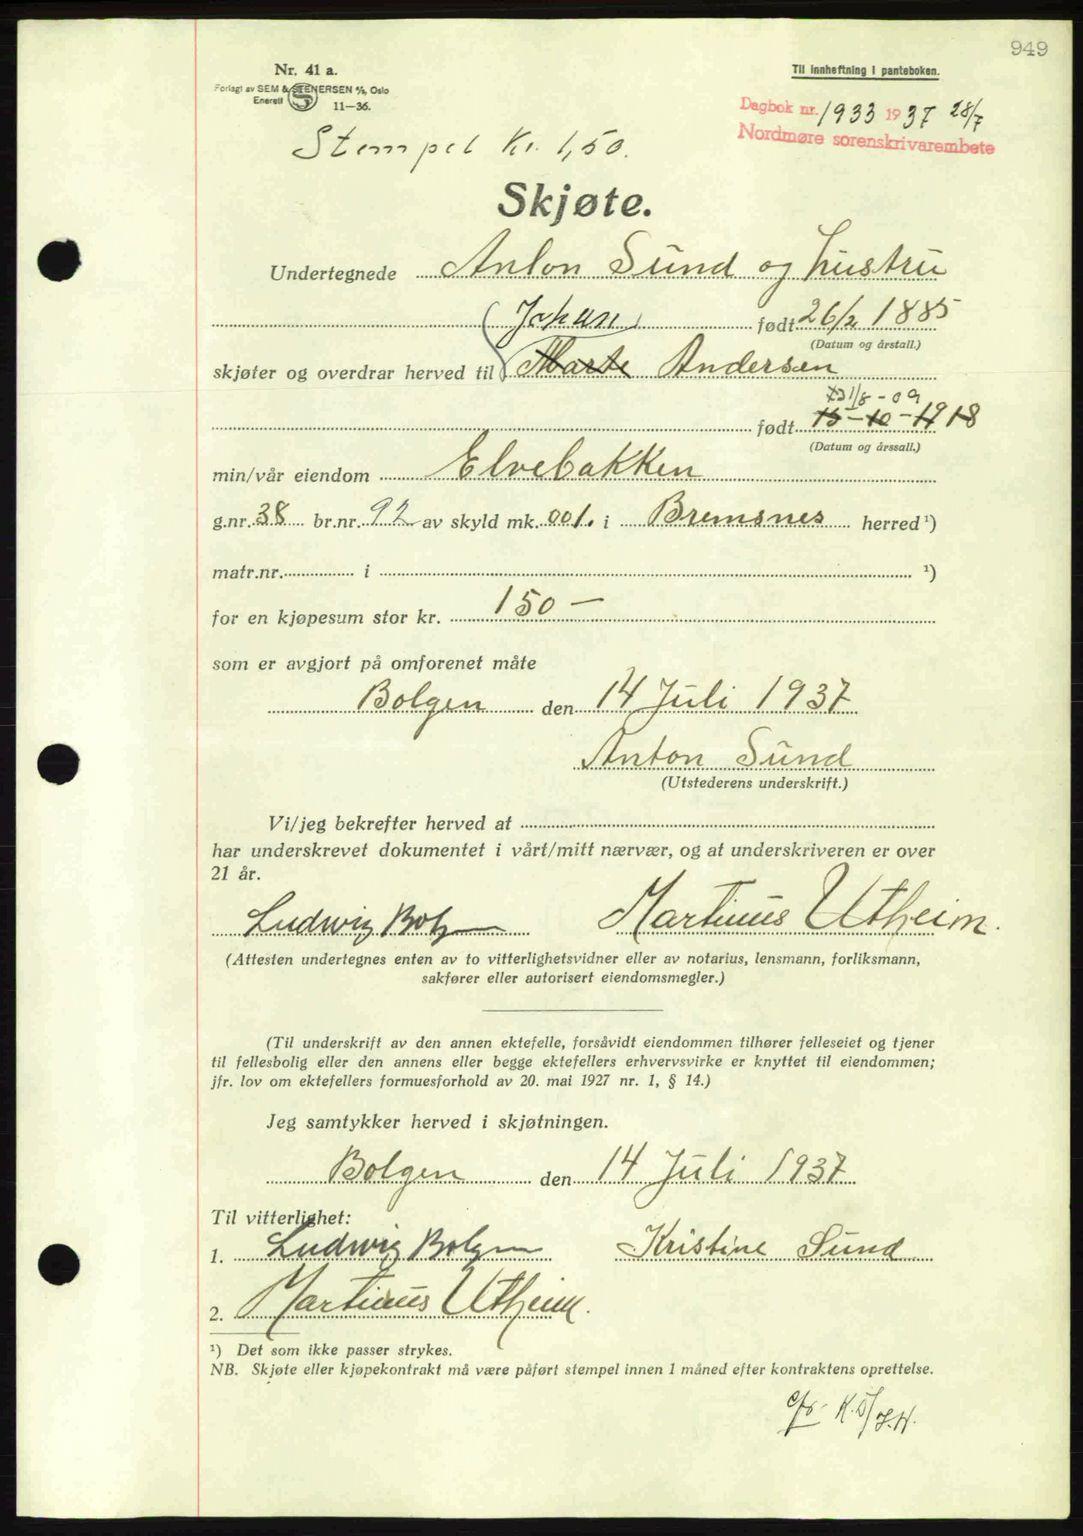 949
Nr. 41 a.
Forlagt av SEM & STENERSEN A/S, Oslo
Enerett 11—36.
Til innheftning i panteboken.
Dagbok nr. 1933 1937 28/7
Nordmøre sorenskrivarembete
Stempel kr. 1,50.
Skjøte.
Undertegnede Anton Sund og hustru
født 26/2 1885
(Datum og årstall.)
Johan
skjøter og overdrar herved til Marte Andersen
31/8 - 09
født 15-10-1918
(Datum og årssall.)
min/vår eiendom Elvebakken
g.nr. 38 br.nr. 92 av skyld mk. 001. i Bremsnes herred ¹)
matr.nr. i ¹)
for en kjøpesum stor kr. 150 —
som er avgjort på omforenet måte
Bolgen den 14 Juli 1937
Anton Sund
(Utstederens underskrift.)
Vi/jeg bekrefter herved at
har underskrevet dokumentet i vårt/mitt nærvær, og at underskriveren er over
21 år.
Ludwig Bolgen Martinus Utheim.
(Attesten undertegnes enten av to vitterlighetsvidner eller av notarius, lensmann, forliksmann,
sakfører eller autorisert eiendomsmegler.)
(Til underskrift av den annen ektefelle, forsåvidt eiendommen tilhører felleseiet og tjener
til fellesbolig eller den annens eller begge ektefellers erhvervsvirke er knyttet til eiendommen;
jfr. lov om ektefellers formuesforhold av 20. mai 1927 nr. 1, § 14.)
Jeg samtykker herved i skjøtningen.
Bolgen den 14 Juli 1937
Til vitterlighet:
1. Ludwig Bolgen Kristine Sund
2. Martinus Utheim.
¹) Det som ikke passer strykes.
NB. Skjøte eller kjøpekontrakt må være påført stempel innen 1 måned efter kontraktens oprettelse.
K.S/J.H.